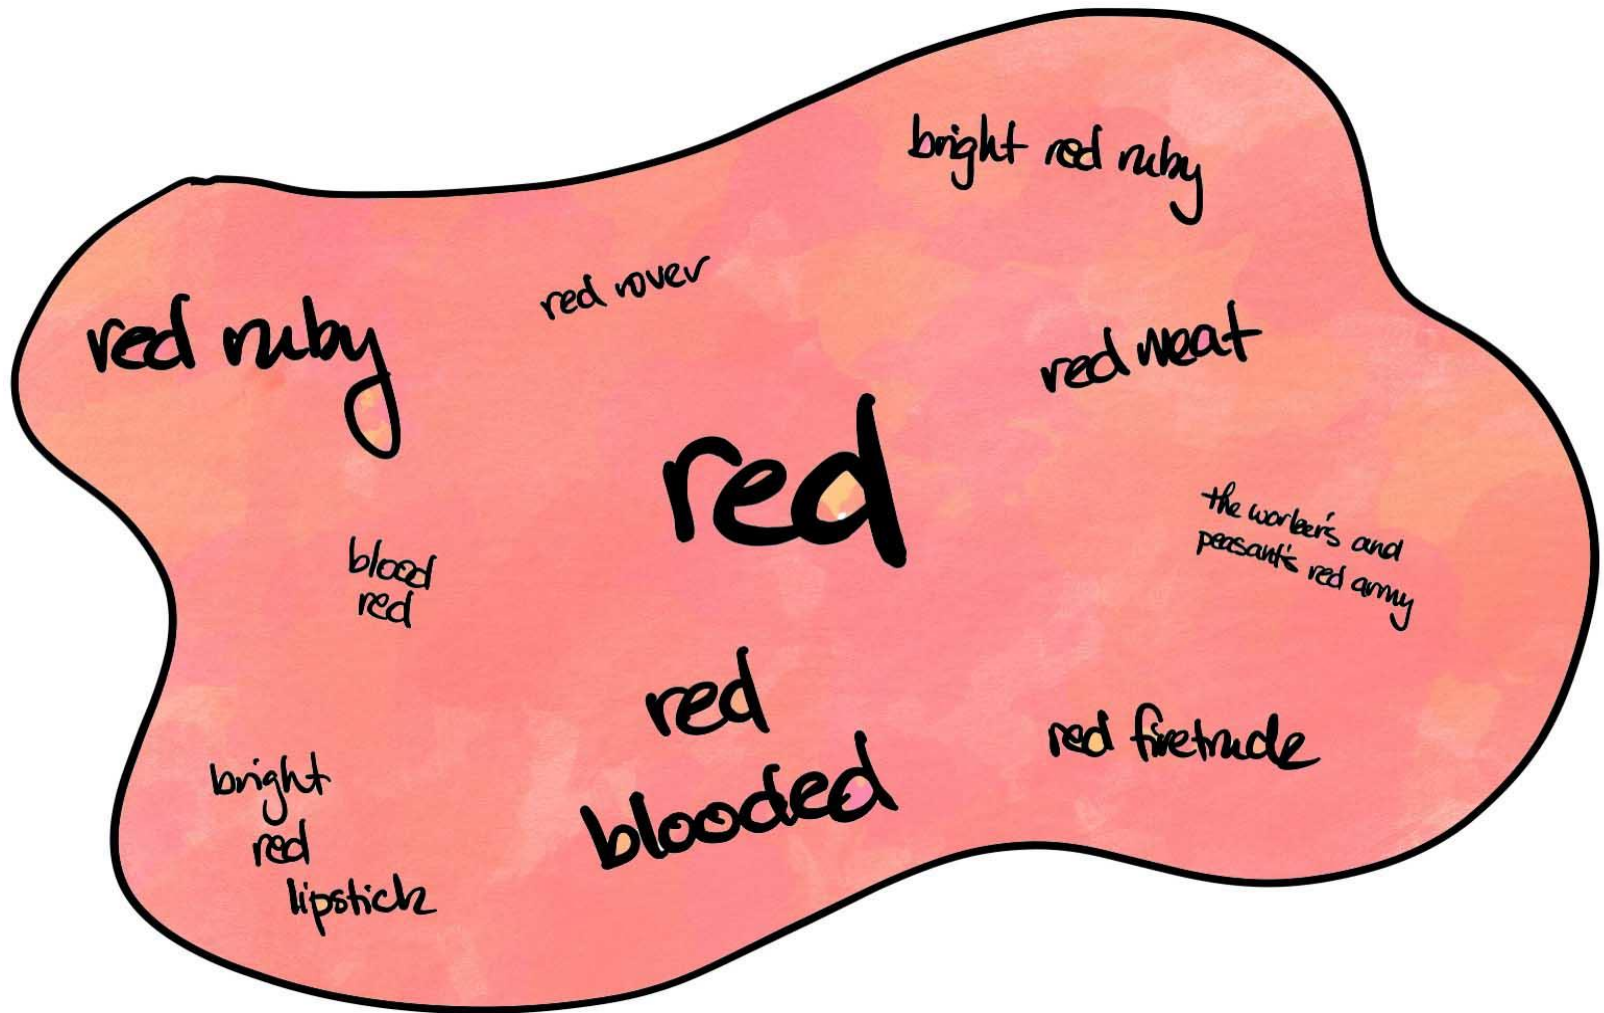 bright red ruby
red rover
red ruby
red meat
red
the worker's and
peasant's red army
blood
red
red
blooded
red firetruck
bright
red
lipstick